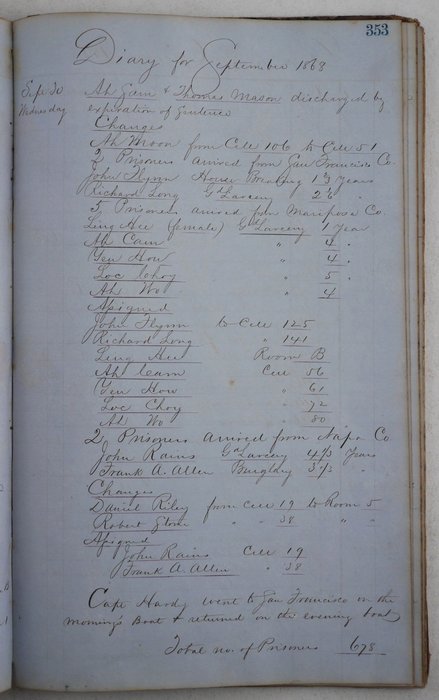 353
Diary for September 1868
Sept 30 Ah Gam & Thomas Mason discharged by
Wednesday expiration of Sentence
Changes
Ah Moon from Cell 106 to Cell 51
2 Prisoners arrived from San Francisco Co.
John Flynn House Breaking Years
Richard Long Gd Larceny "
5 Prisoners arrived from Mariposa Co.
Ling Hee (female) Gd Larceny 1 Year
Ah Cam " 4 "
Yen How " 4 "
Loc Choy " 5 "
Ah Wo " 4
Assigned
John Flynn to Cell 125
Richard Long " 141
Ling Hee Room B
Ah Cam Cell 56
Yen How " 61
Loc Choy " 72
Ah Wo " 80
2 Prisoners arrived from Napa Co
John Rains Gd Larceny Years
Frank A. Allen Burglary "
Changes
Daniel Riley from Cell 19 to Room 5
Robert Stone " " 38 " "
Assigned
John Rains Cell 19
Frank A. Allen " 38
Capt Hardy went to San Francisco on the
morning's Boat & returned on the evening boat
Total no. of Prisoners 678